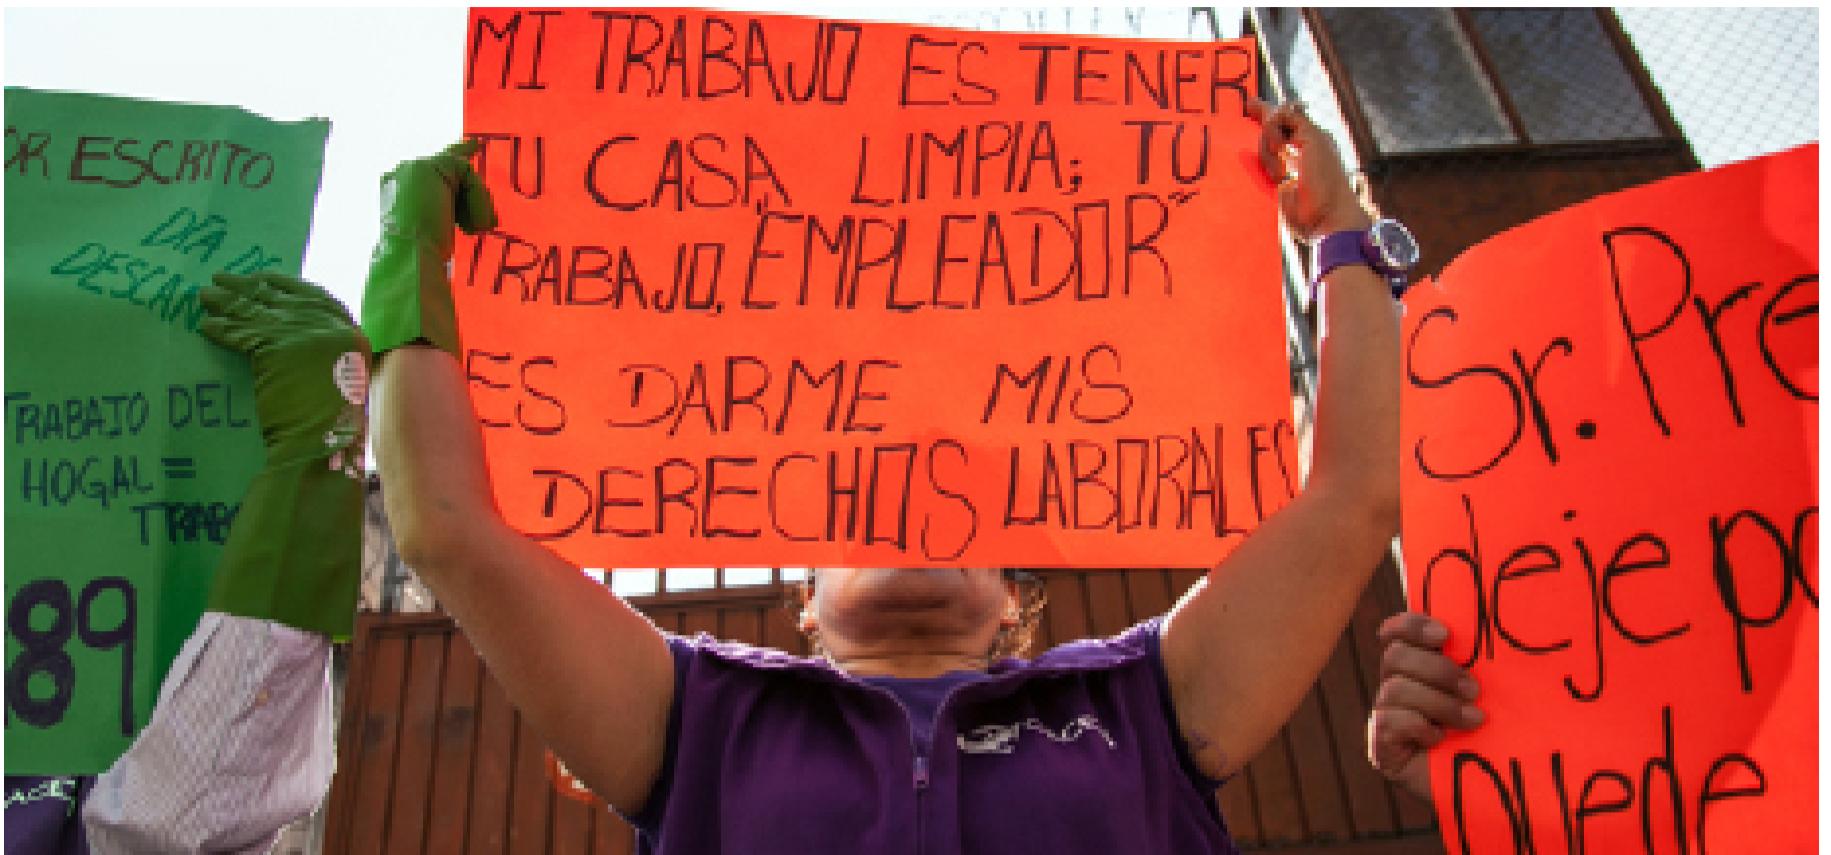 OR ESCRITO
DÍA DE
DESCAN
TRABAJO DEL
HOGAL =
TRABA
189
MI TRABAJO ES TENER
TU CASA LIMPIA; TU
TRABAJO, "EMPLEADOR"
ES DARME MIS
DERECHOS LABORALES
Sr. Pre
deje po
quede